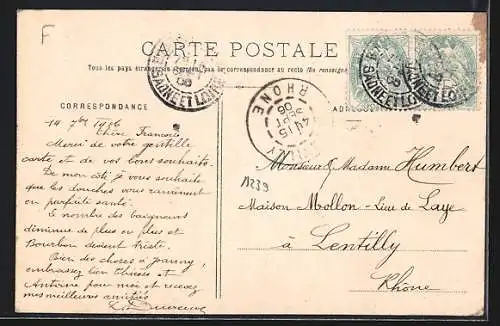 F
CARTE POSTALE
Tous les pays étrangers la correspondance au recto (Se renseigner
SAÔNE ET LOIRE
SAÔNE ET LOIRE
CORRESPONDANCE
RHÔNE
15
SEPT
06
14 7bre 1906
Chère Francine
Merci de votre gentille
carte et de vos bons souhaits.
De mon côté je vous souhaite
que les douches vous ramènent
en parfaite santé.
Le nombre des baigneurs
diminue de plus en plus et
Bourbon devient triste.
Bien des choses à Joanny,
embrassez bien et
Antoine pour moi et recevez
mes meilleures amitiés
Monsieur & Madame Humbert
M239
Maison Mollon - Lieu de Laye
à Lentilly
Rhône